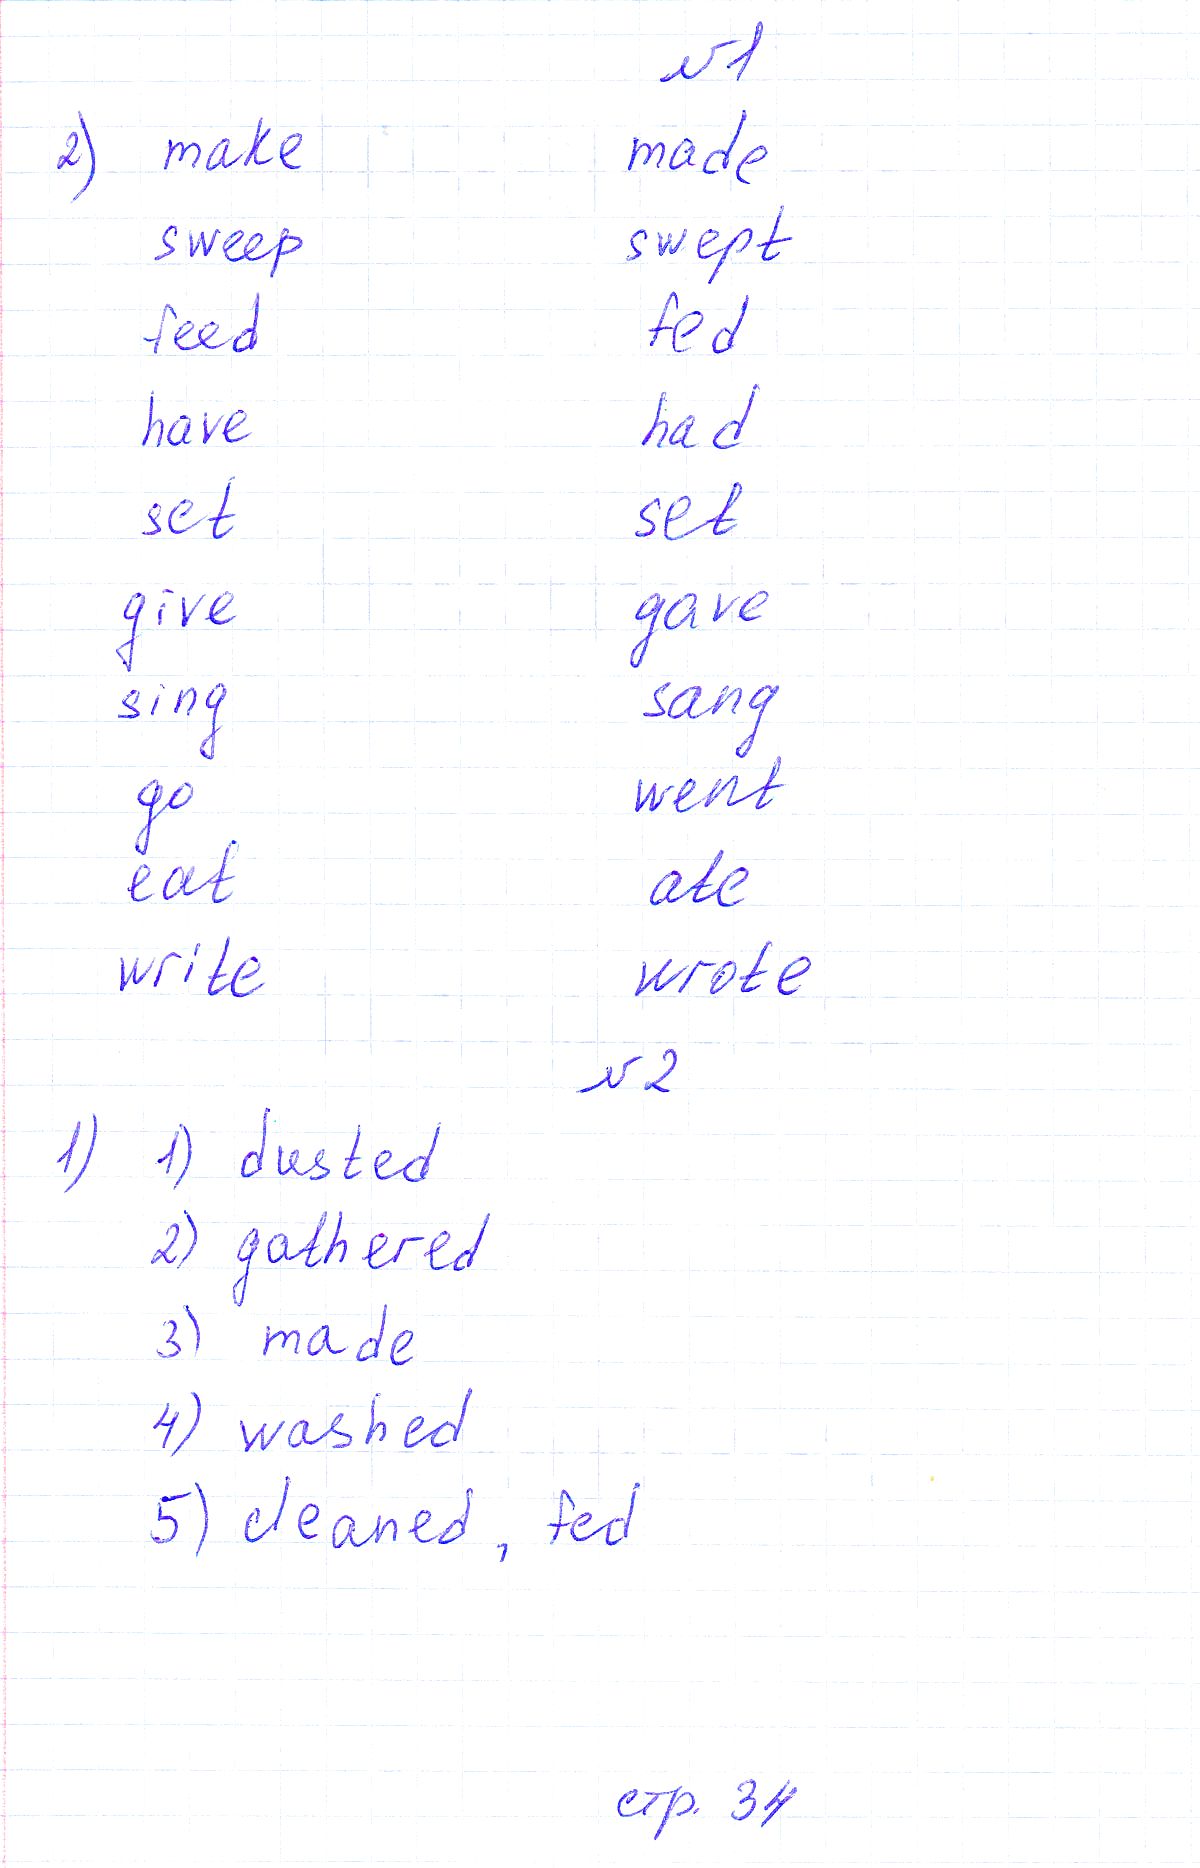 №1
2) make made
sweep swept
feed fed
have had
set set
give gave
sing sang
go went
eat ate
write wrote
№2
1) 1) dusted
2) gathered
3) made
4) washed
5) cleaned, fed
стр. 34